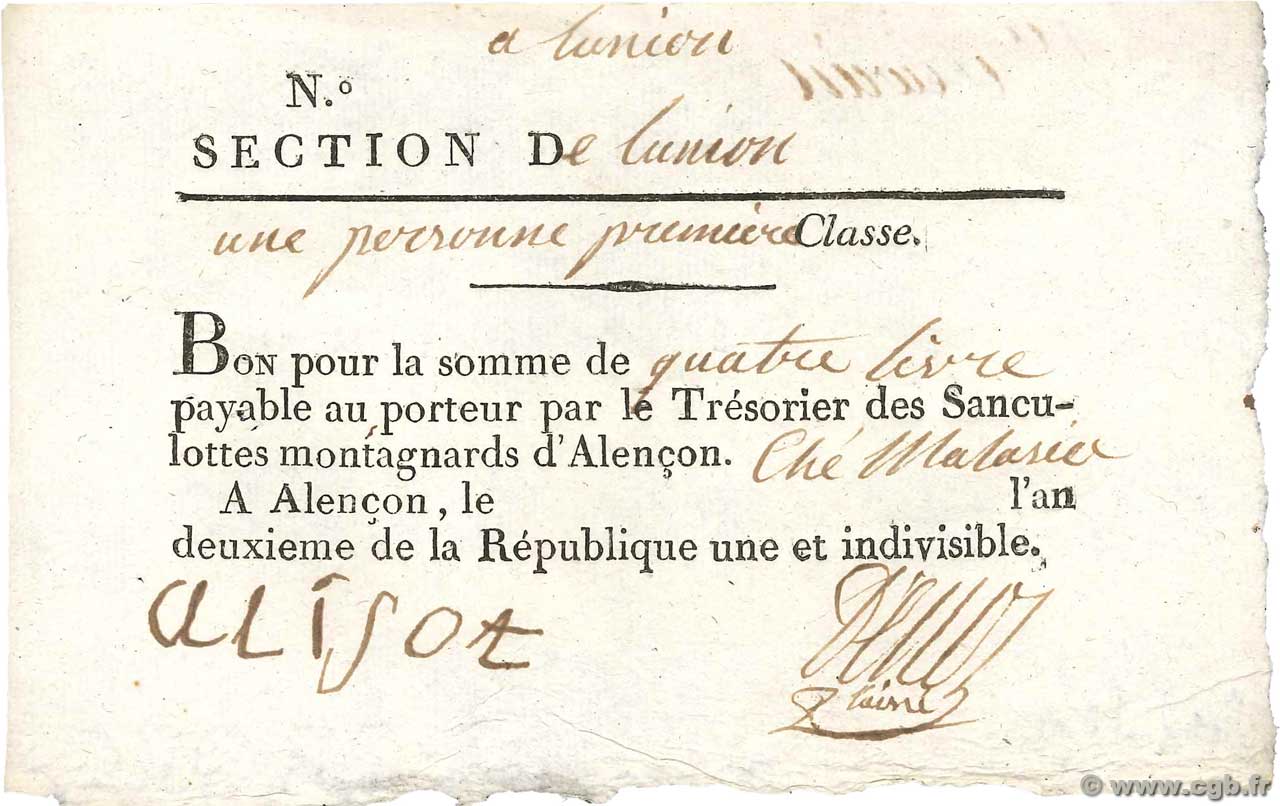 a lunion
N.o
SECTION De lunion
une personne première Classe.
BON pour la somme de quatre livre
payable au porteur par le Trésorier des Sancu-
lottes montagnards d'Alençon. Ché
A Alençon, le l'an
deuxieme de la République une et indivisible.
aliJot
lainé
© www.cgb.fr